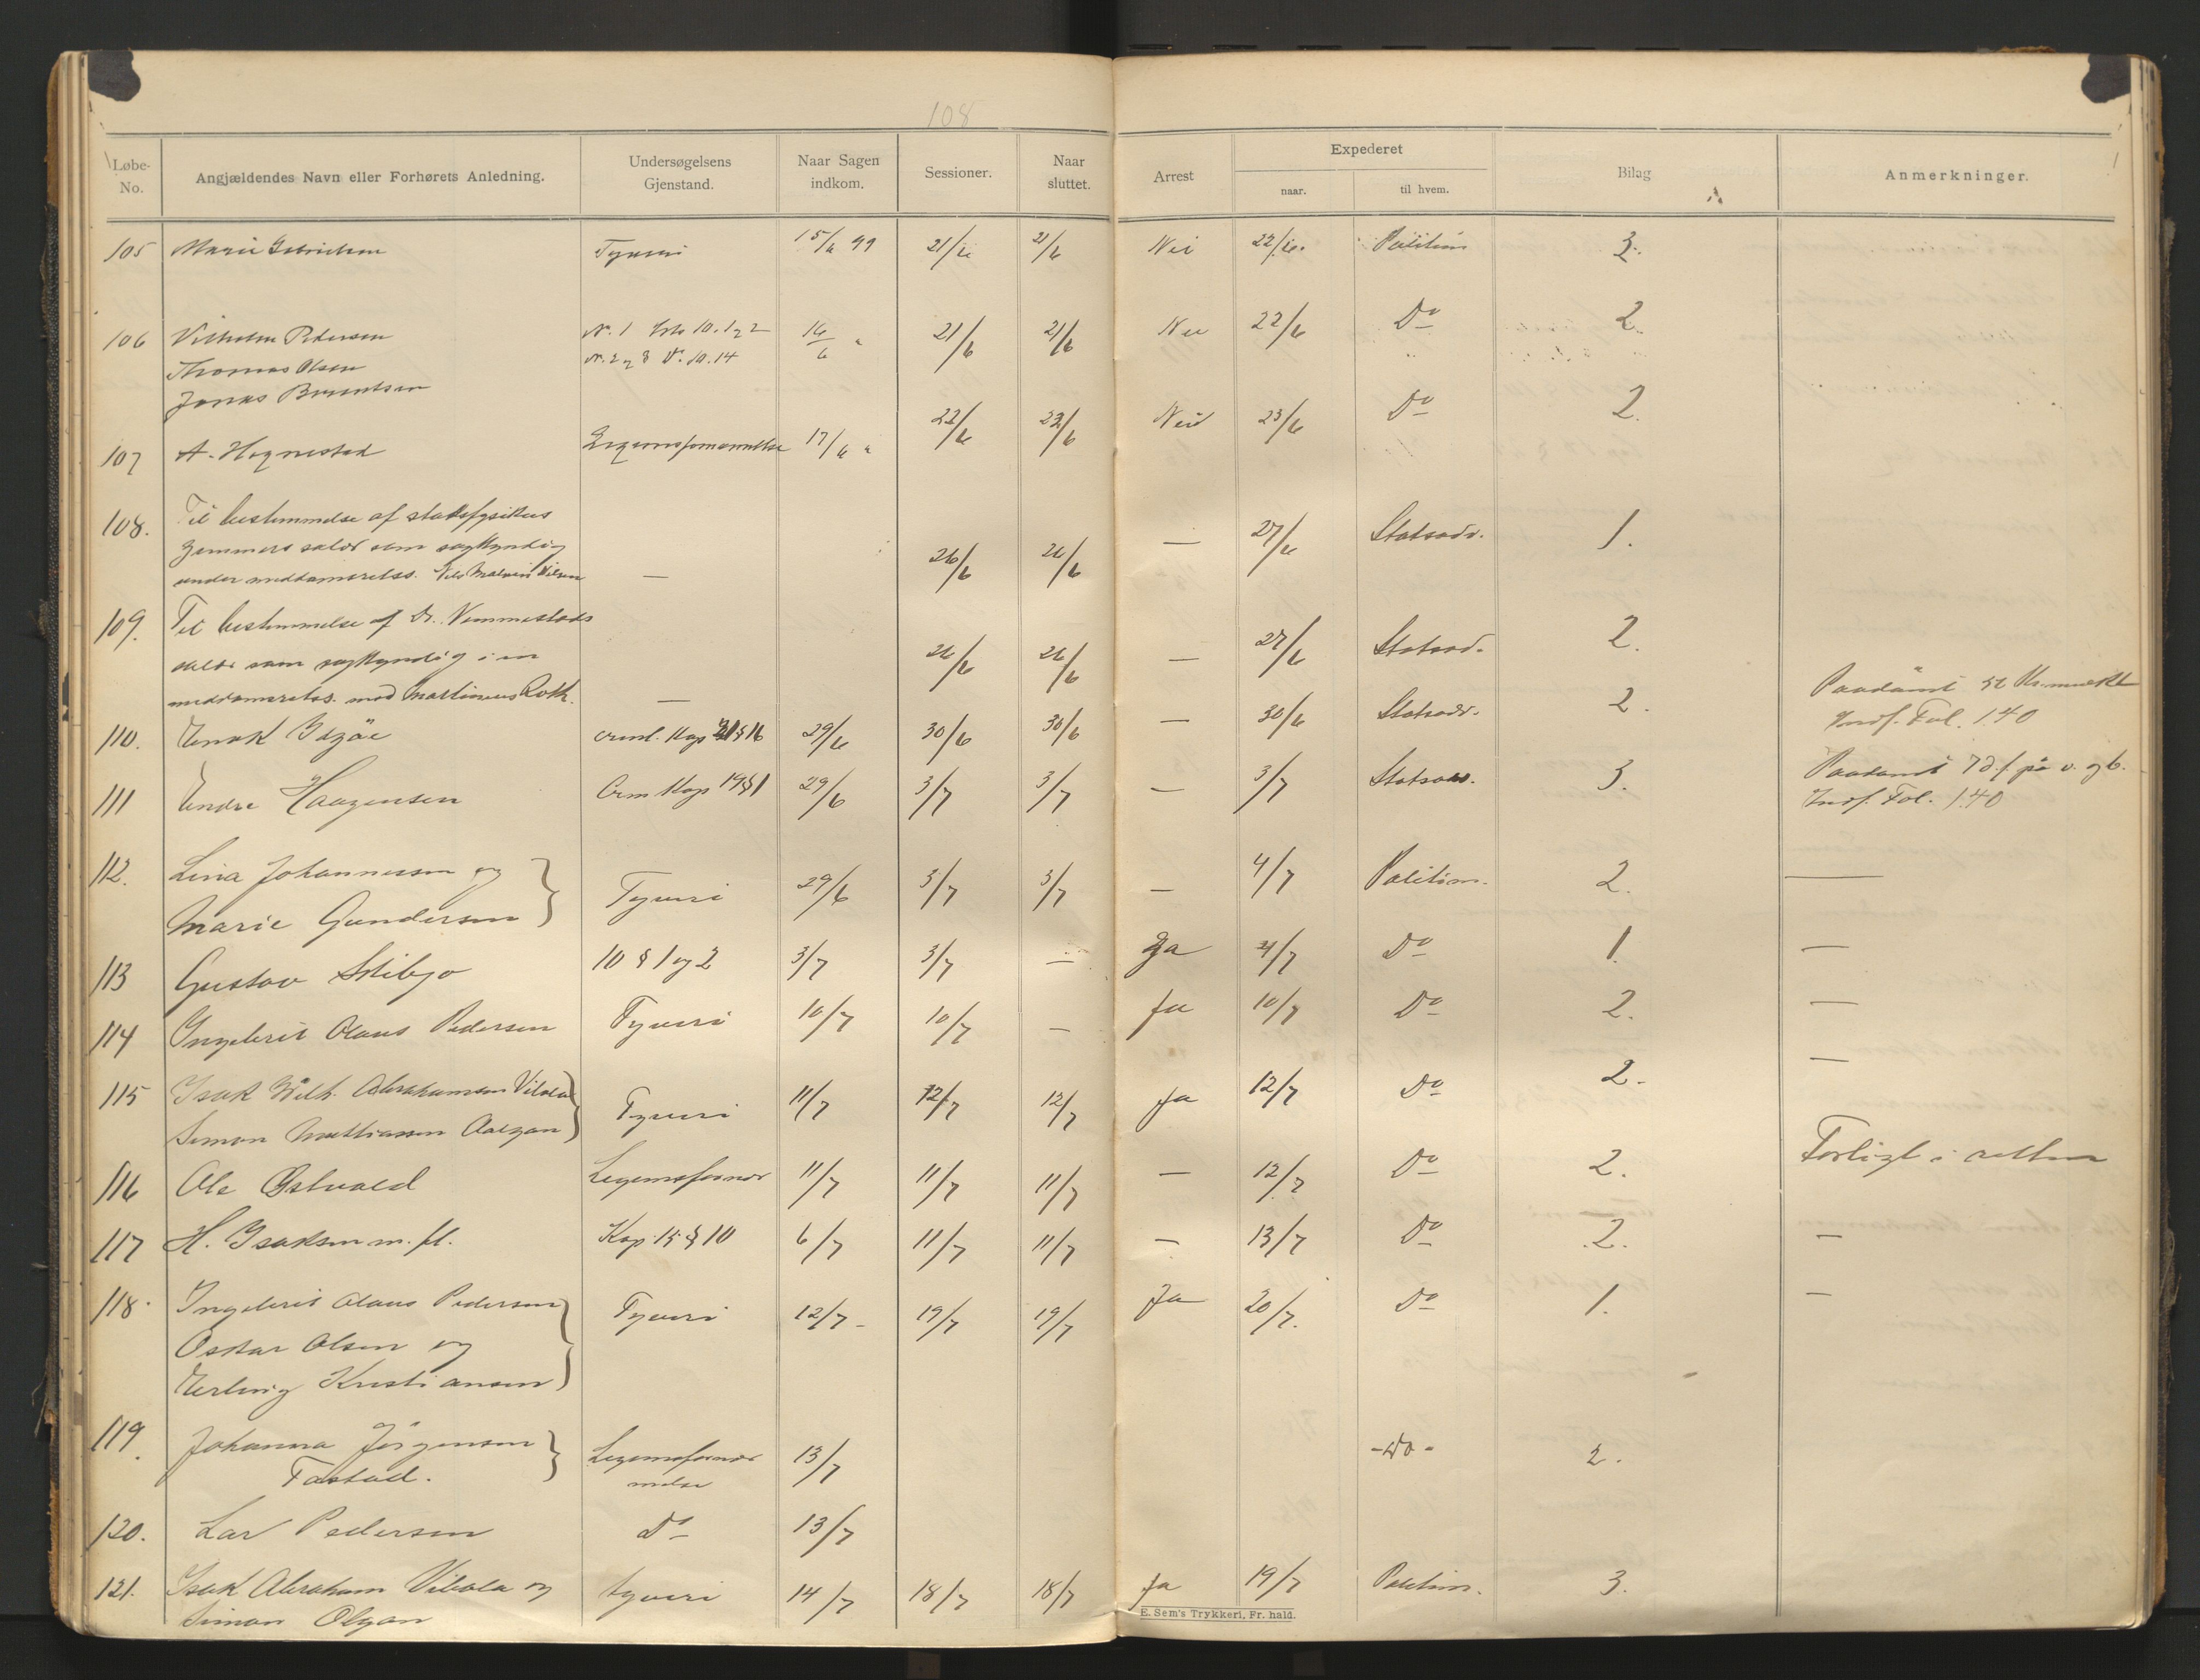 108
Løbe-No. Angjældendes Navn eller Forhørets Anledning. Undersøgelsens Gjenstand. Naar Sagen indkom. Sessioner. Naar sluttet. Arrest Expederet naar. til hvem. Bilag Anmerkninger.
105 Marie Gabrielsen Tyveri 15/6 99 21/6 21/6 Nei 22/6. Politim 3.
106 Vilhelm Pedersen N. 1 10. 1 og 2 16/6 " 21/6 21/6 Nei 22/6 Do 2
Thomas Olsen N. 2 og 3 10. 14
Jonas Berentsen
107 A. Hognestad Legemsfornærmelse 17/6 " 22/6 22/6 Nei 23/6 Do 2.
108. Til bestemmelse af stadsfysikus
salær som sagkyndig
under meddomsretss. — 26/6 26/6 — 27/6 Statsadv. 1.
109. Til bestemmelse af Dr. Nummestads
salær som sagkyndig i en
meddomsretss. mod Martinius Roth. — 26/6 26/6 — 27/6 Statsad. 2.
110. Enok Idsøe Criml. Kap 21 § 16 29/6 30/6 30/6 — 30/6 Statsadv. 2. Paadømt
Indf. Fol. 140
111 Endre Haagensen Crm Kap 19 § 1 29/6 3/7 3/7 — 3/7 Statsadv. 3. Paadømt 7 d. f. på v. og b.
Indf. Fol. 140
112. Lina Johannessen og
Marie Gundersen } Tyveri 29/6 3/7 3/7 — 4/7 Politim. 2. —
113 Gustav Skibjo 10 § 1 og 2 3/7 3/7 — Ja 4/7 Do 1. —
114 Ingebret Olaus Pedersen Tyveri 10/7 10/7 — Ja 10/7 Do 2. —
115 Isak Wilh. Abrahamsen
Simon Matthiassen } Tyveri 11/7 12/7 12/7 Ja 12/7 Do 2. —
116 Ole Østvold Legemsfornær 11/7 11/7 11/7 — 12/7 Do 2. Forligt i retten
117 H. Isaksen m. fl. Kap. 15 § 10 6/7 11/7 11/7 — 13/7 Do 2. —
118. Ingebret Olaus Pedersen
Oskar Olsen og
Erling Kristiansen } Tyveri 12/7 19/7 19/7 Ja 20/7. Do 1. —
119. Johanna Jörgensen
Tastad. } Legemsfornær
melse 13/7 - Do - 2.
120. Lar Pedersen Do 13/7
121. Isak Abraham Vibola og tyveri 14/7 18/7 18/7 Ja 19/7 Politim. 3.
Simon Olgan
E. Sem's Trykkeri, Fr. hald.